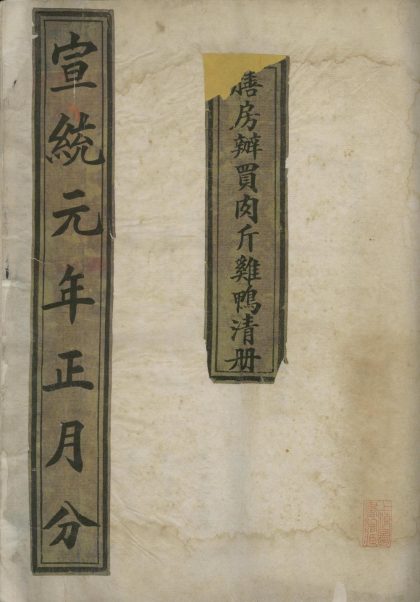 膳房辦買肉斤雞鴨清册
宣統元年正月分